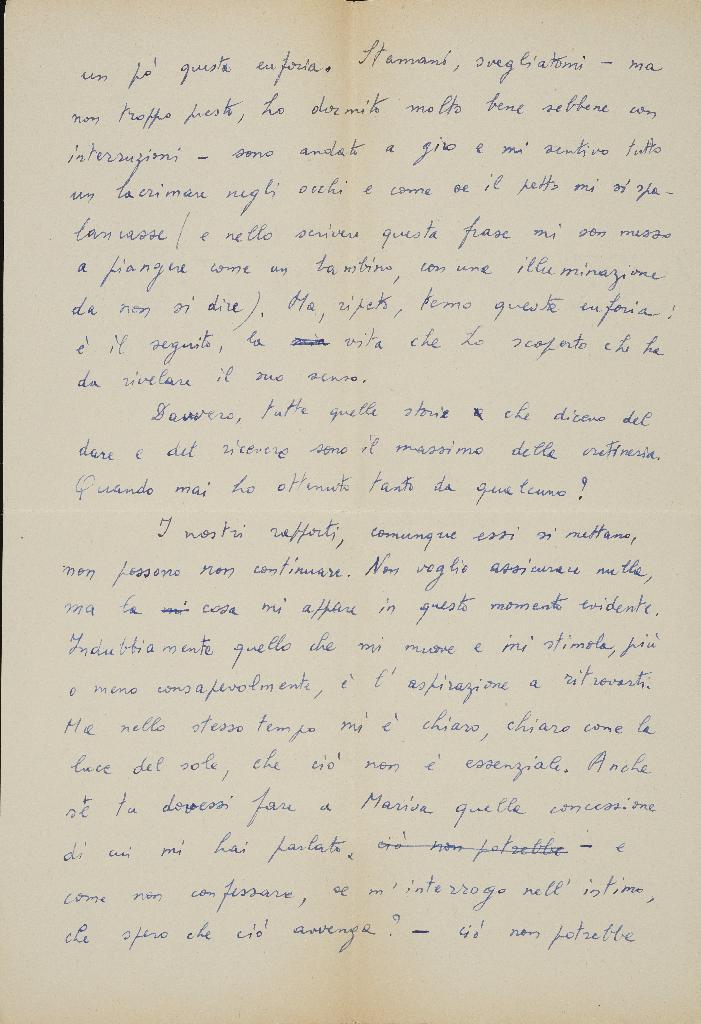 un pó questa euforia. Stamani, svegliatomi – ma
non troppo presto, ho dormito molto bene sebbene con
interruzioni – sono andato a giro e mi sentivo tutto
un lacrimare negli occhi e come se il petto mi si spa-
lancasse (e nello scrivere questa frase mi son messo
a piangere come un bambino, con una illuminazione
da non si dire). Ma, ripeto, temo questa euforia:
è il seguito, la mia vita che ho scoperto che ha
da rivelare il suo senso.
Davvero, tutte quelle storie che dicevo del
dare e del ricevere sono il massimo della cretineria.
Quando mai ho ottenuto tanto da qualcuno?
I nostri rapporti, comunque essi si mettano,
non possono non continuare. Non voglio assicurare nulla,
ma la mi cosa mi appare in questo momento evidente.
Indubbiamente quello che mi muove e mi stimola, più
o meno consapevolmente, è l'aspirazione a ritrovarti.
Ma nello stesso tempo mi è chiaro, chiaro come la
luce del sole, che ciò non è essenziale. Anche
se tu dovessi fare a Mariva quella concessione
di cui mi hai parlato, ciò non potrebbe – e
come non confessare, se m'interrogo nell'intimo,
che spero che ciò avvenga? – ciò non potrebbe